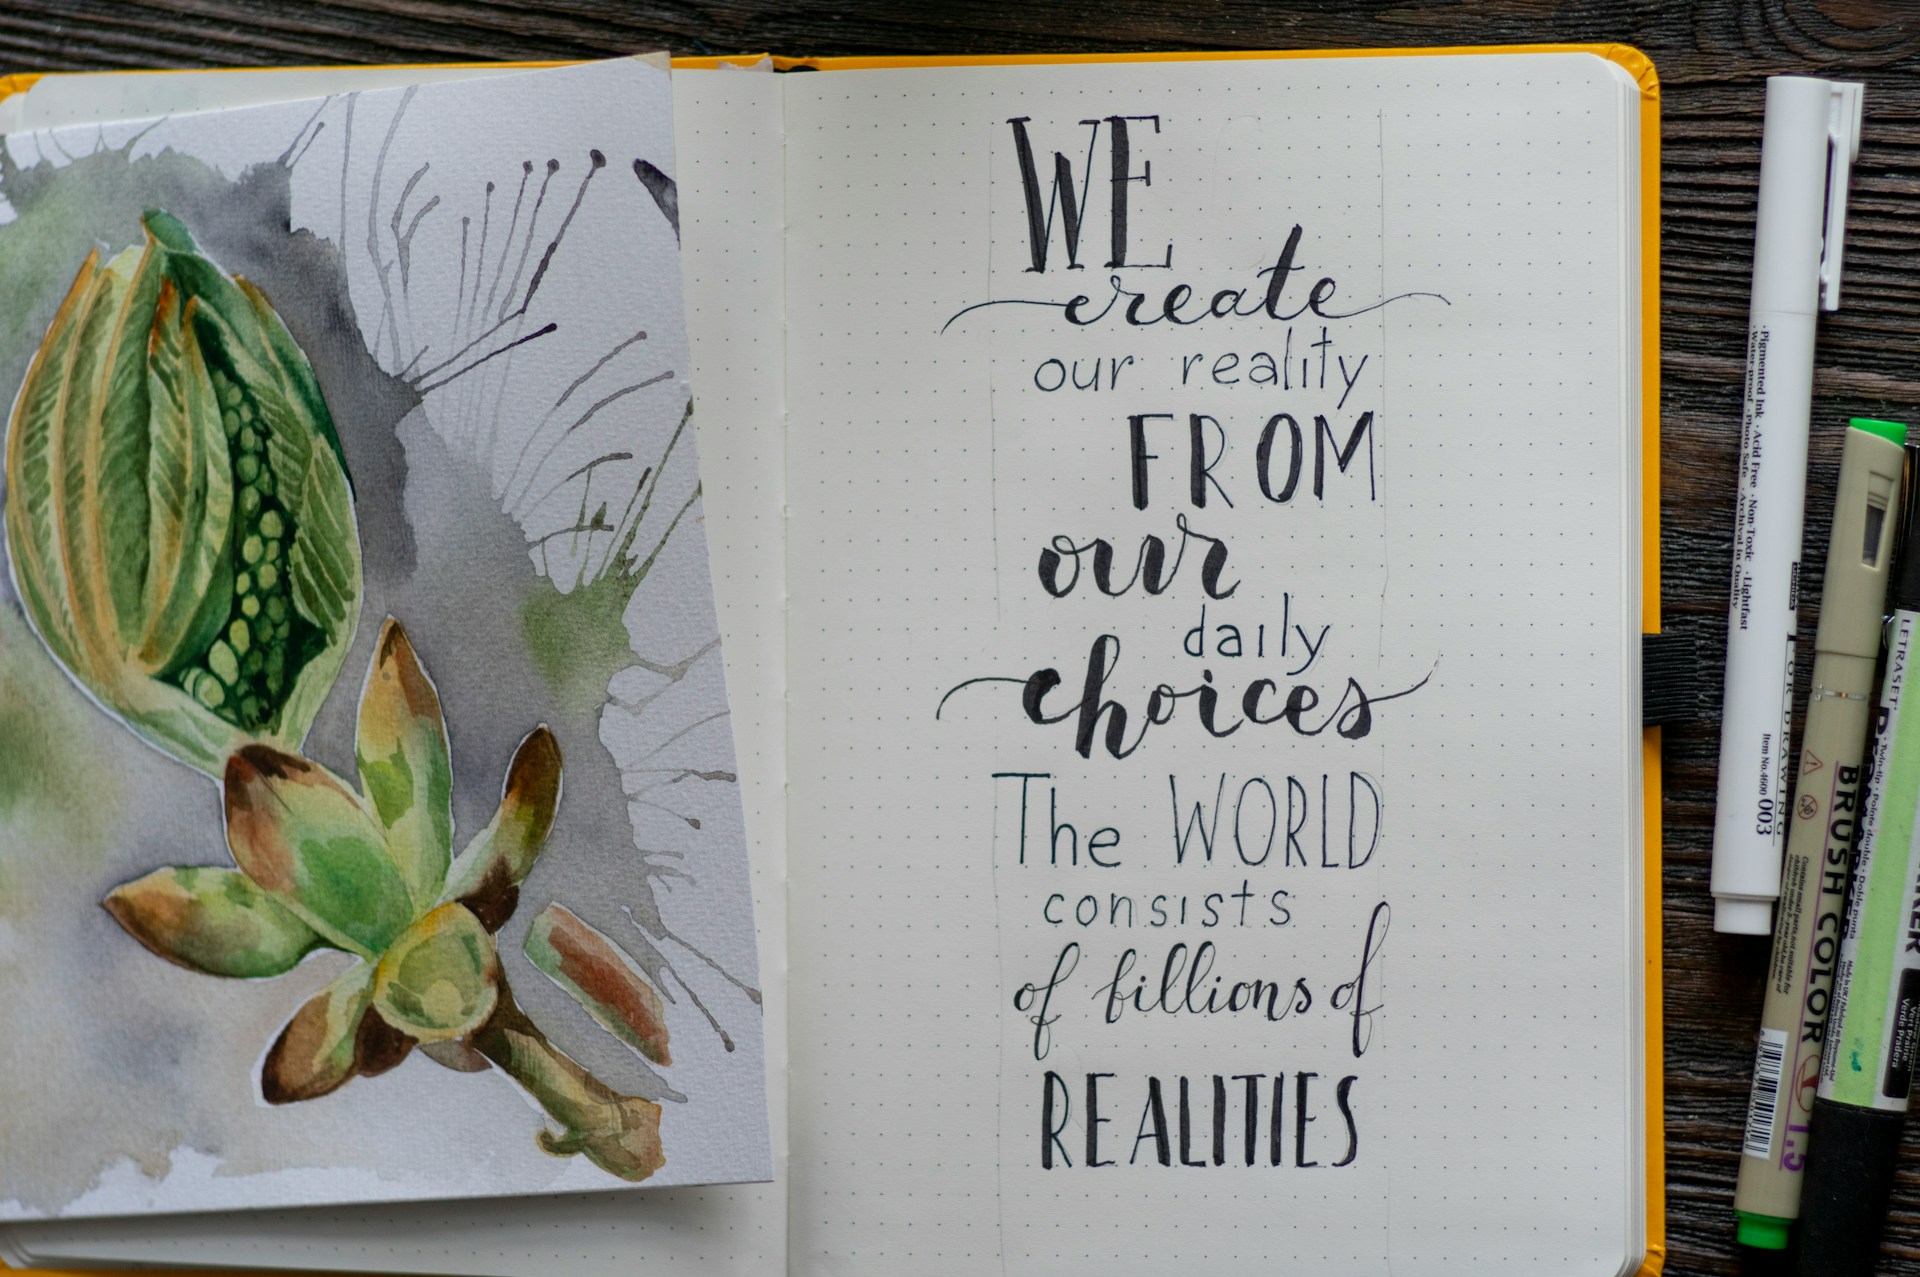 WE
create
our reality
FROM
our
daily
choices
The WORLD
consists
of billions of
REALITIES
Pigmented Ink · Acid Free · Non-Toxic · Lightfast
Waterproof · Photo Safe · Archival in Quality
FOR DRAWING
Item No.4600 003
BRUSH COLOR
1.5
LETRASET
Vert Prairie
Verde Pradera